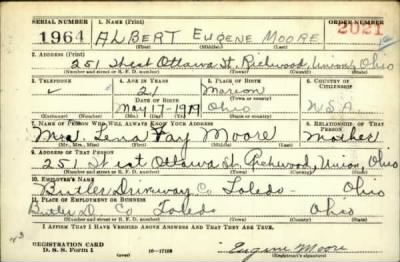 SERIAL NUMBER 1. NAME (Print) ORDER NUMBER
1964 ALBERT EUGENE MOORE 2021
(First) (Middle) (Last)
2. ADDRESS (Print)
251 West Ottawa St, Richwood, Union, Ohio
(Number and street or R. F. D. number) (Town) (County) (State)
3. TELEPHONE 4. AGE IN YEARS 5. PLACE OF BIRTH 6. COUNTRY OF CITIZENSHIP
21 Marion
(Town or county)
DATE OF BIRTH
May 17-1919 Ohio U S A
(Exchange) (No.) (Mo.) (Day) (Yr.) (State or country)
7. NAME OF PERSON WHO WILL ALWAYS KNOW YOUR ADDRESS 8. RELATIONSHIP OF THAT PERSON
Mrs. Fay Moore Mother
(Mr., Mrs., Miss) (First) (Middle) (Last)
9. ADDRESS OF THAT PERSON
251 West Ottawa St, Richwood, Union, Ohio
(Number and street or R. F. D. number) (Town) (County) (State)
10. EMPLOYER'S NAME
Butler Co Toledo - Ohio
11. PLACE OF EMPLOYMENT OR BUSINESS
Butler D. Co Toledo Ohio
(Number and street or R. F. D. number) (Town) (County) (State)
I AFFIRM THAT I HAVE VERIFIED ABOVE ANSWERS AND THAT THEY ARE TRUE.
REGISTRATION CARD
D. S. S. Form 1 16-17105 Eugene Moore
(Registrant's signature)